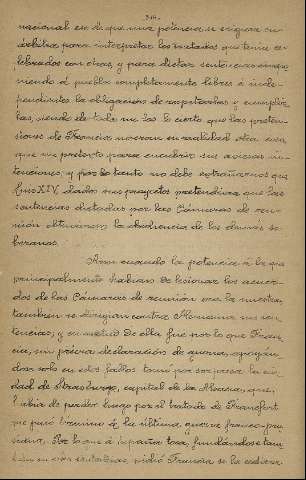 346.
nacional era de que una potencia se erigiera en
árbitra para interpretar los tratados que tenia ce-
lebrados con otras, y para dictar sentencias
niendo al pueblo completamente libres é inde-
pendientes la obligacion de respetarlas y cumplir-
las, siendo de todo ello lo cierto que las preten-
siones de Francia no eran en realidad otra cosa
que un pretexto para encubrir sus aviesas in-
tenciones, y por lo tanto no debe extrañarnos que
Luis XIV, dados sus proyectos pretendiera que las
sentencias dictadas por las Cámaras de reu-
nión obtuvieran la obediencia de los demas so-
beranos.
Aun cuando la potencia á la que
principalmente habian de lesionar los acuer-
dos de las Camaras de reunión era la nuestra,
tambien se dirigian contra Alemania sus sen-
tencias; y en virtud de ella fue por lo que Fran-
cia, sin prévia declaración de guerra, apoyan-
dose solo en estos fallos tomó por sorpresa la ciu-
dad de Strasburgo, capital de la Alsacia, que
habia de perder luego por el tratado de Francfort
que puso termino á la última guerra franco-pru-
siana. Por lo que á España toca, fundándose tam-
bien en esas sentencias, pidió Francia se la cediera